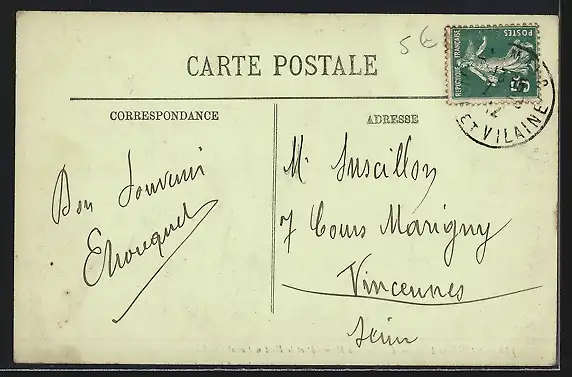 5€
CARTE POSTALE
CORRESPONDANCE
ADRESSE
REPUBLIQUE FRANÇAISE
POSTES
5c
12
ET VILAINE
Bon Souvenir
Mr Suscillon
7 Cours Marigny
Vincennes
Seine